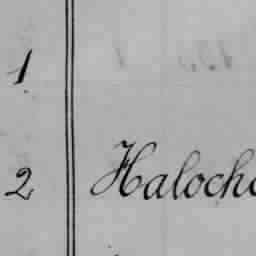 1
2 Haloch